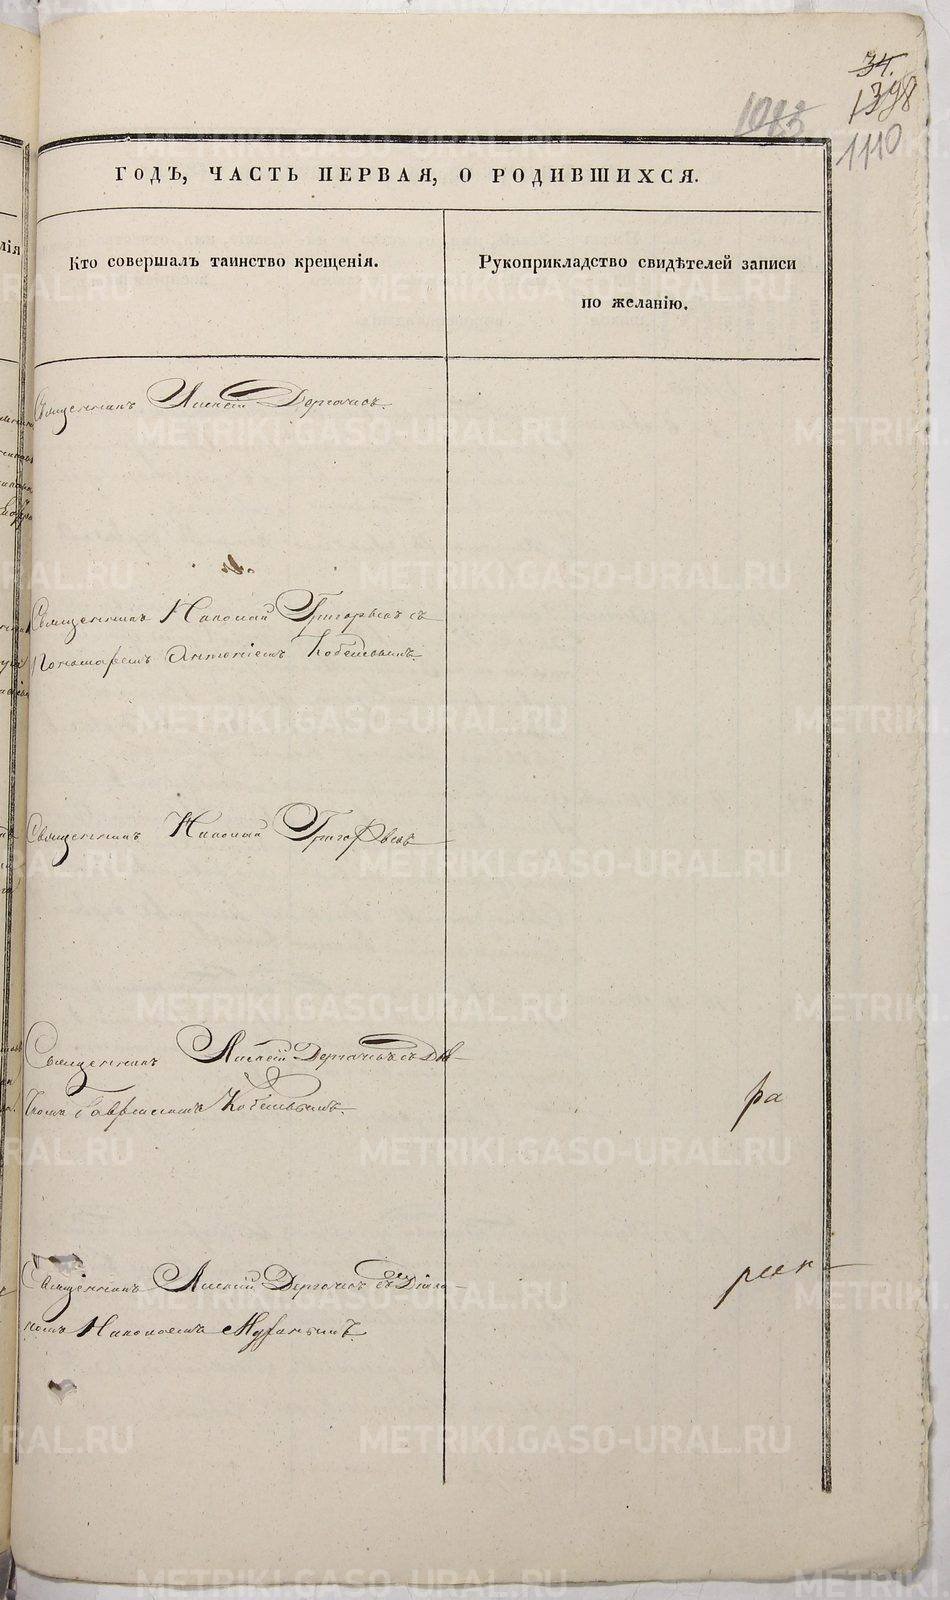 34.
1398
1083
1110
ГОДЪ, ЧАСТЬ ПЕРВАЯ, О РОДИВШИХСЯ.
Кто совершалъ таинство крещенія.
Рукоприкладство свидѣтелей записи
по желанію.
Священникъ Алексій Дергачевъ.
Священникъ Николай Григорьевъ съ
Пономаремъ Антоніемъ Кобелевымъ.
Священникъ Николай Григорьевъ
Священникъ Алексій Дергачевъ съ Дья-
комъ Гавриломъ Кобелевымъ.
ра
Священникъ Алексій Дергачевъ съ Діако-
номъ Николаемъ
METRIKI.GASO-URAL.RU